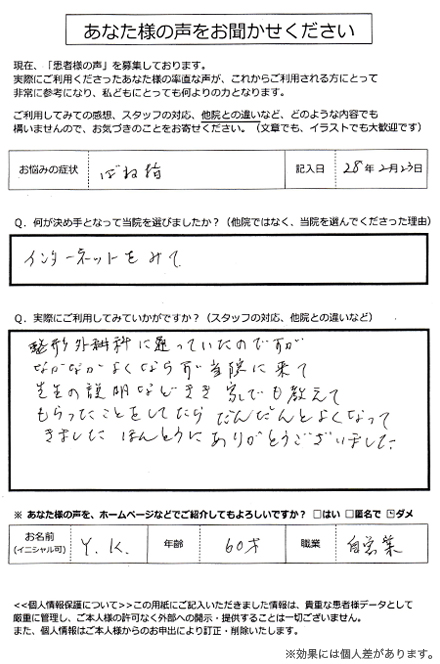 あなた様の声をお聞かせください
現在、「患者様の声」を募集しております。
実際にご利用くださったあなた様の率直な声が、これからご利用される方にとって
非常に参考になり、私どもにとっても何よりの力となります。
ご利用してみての感想、スタッフの対応、他院との違いなど、どのような内容でも
構いませんので、お気づきのことをお寄せください。（文章でも、イラストでも大歓迎です）
お悩みの症状 ばね指 記入日 28年2月23日
Q．何が決め手となって当院を選びましたか？（他院ではなく、当院を選んでくださった理由）
インターネットをみて
Q．実際にご利用してみていかがですか？（スタッフの対応、他院との違いなど）
整形外科に通っていたのですが
なかなかよくならず当院に来て
先生の説明などきき家でも教えて
もらったことをしてたらだんだんとよくなって
きました ほんとうにありがとうございました
※ あなた様の声を、ホームページなどでご紹介してもよろしいですか？ □はい □匿名で □ダメ
お名前 Y.K. 年齢 60才 職業 自営業
(イニシャル可)
<<個人情報保護について>>この用紙にご記入いただきました情報は、貴重な患者様データとして
厳重に管理し、ご本人様の許可なく外部への開示・提供することは一切ございません。
また、個人情報はご本人様からのお申出により訂正・削除いたします。
※効果には個人差があります。